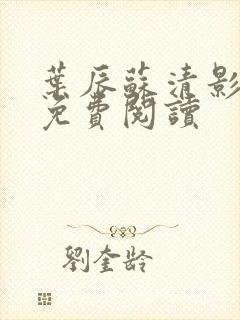 葉辰蘇清影
免費閱讀
劉奎齡